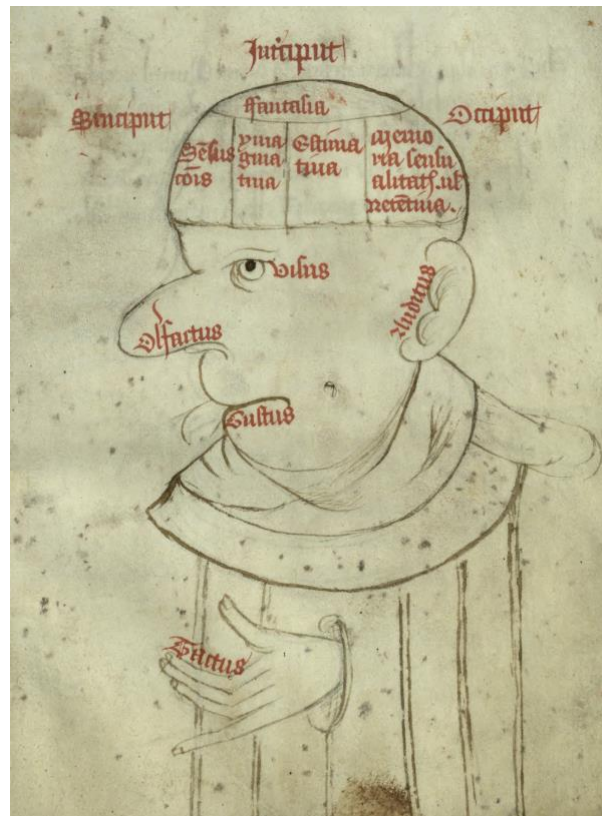 Juncciput
Sinciput
Occiput
ffantasia
Sēsus
cōis
ymagi
gina
tiua
Estima
tiua
Memo
ria sensu
alitat. ul
retētiua.
visus
Auditus
Olfactus
Gustus
Tactus